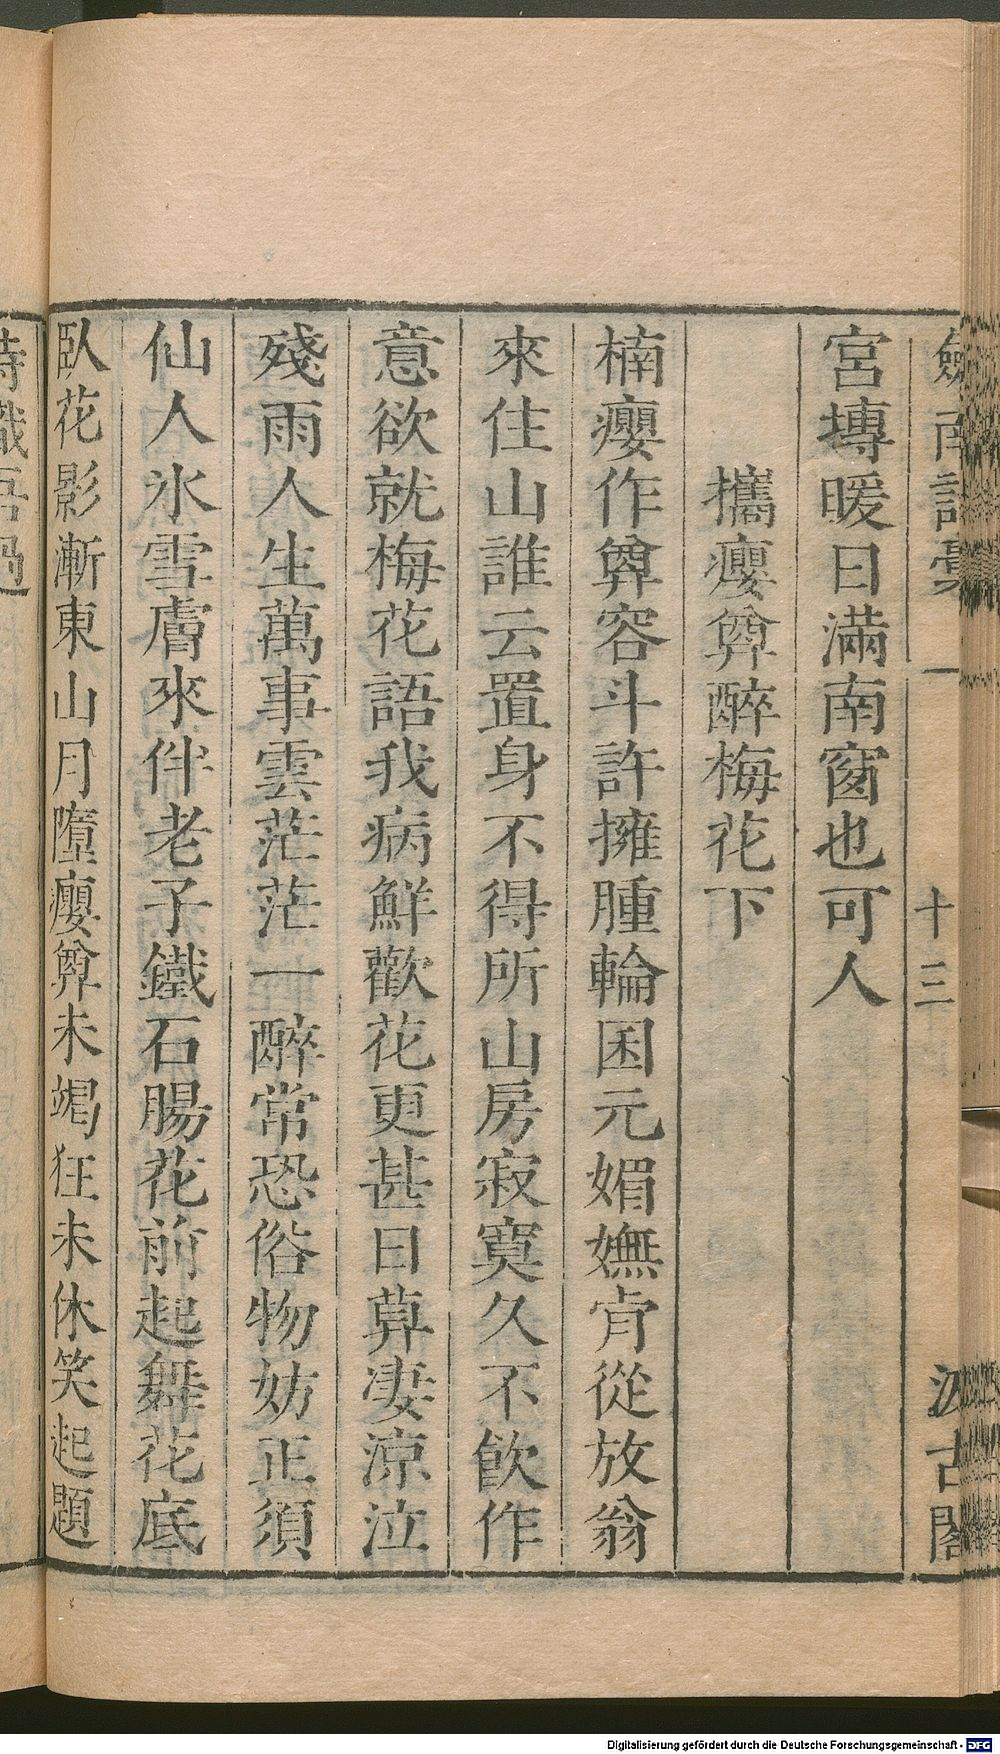 劍南詩稾 一 十三 汲古閣
宮塼暖日滿南窗也可人
攜癭罇醉梅花下
楠癭作罇容斗許擁腫輪囷元媚嫵肯從放翁
來住山誰云置身不得所山房寂寞久不飲作
意欲就梅花語我病鮮歡花更甚日莫淒涼泣
殘雨人生萬事雲茫茫一醉常恐俗物妨正須
仙人氷雪膚來伴老子鐵石腸花前起舞花底
臥花影漸東山月墮癭罇未竭狂未休笑起題
Digitalisierung gefördert durch die Deutsche Forschungsgemeinschaft - DFG